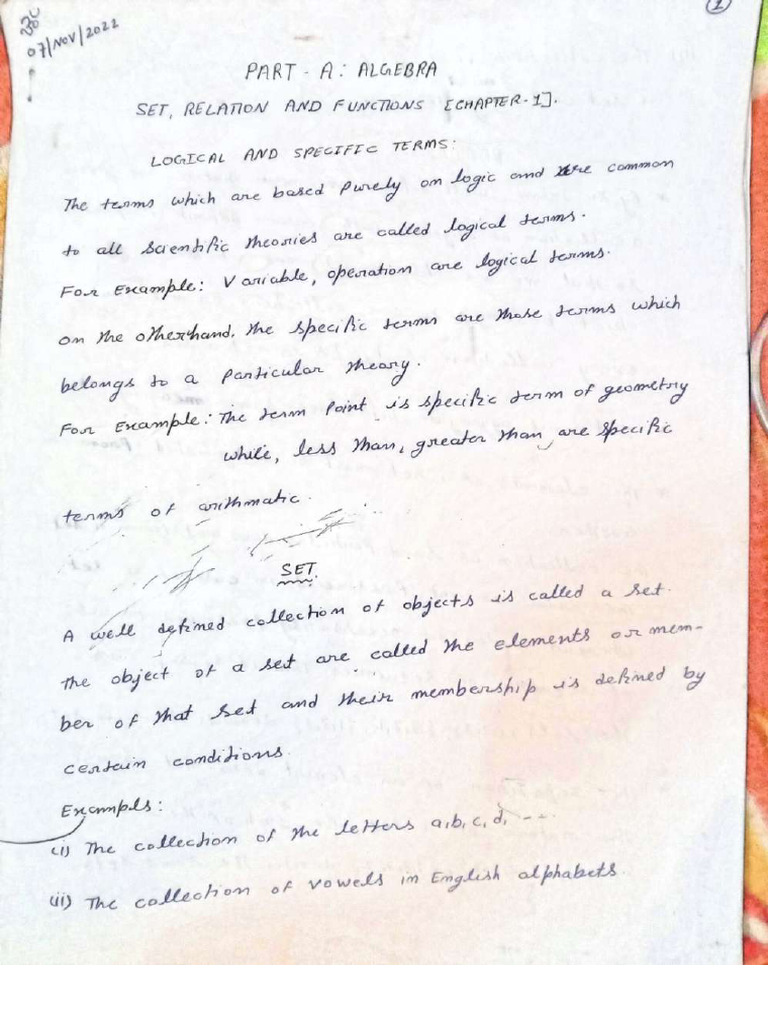 1
07/NOV/2022
PART - A: ALGEBRA
SET, RELATION AND FUNCTIONS [CHAPTER-1].
LOGICAL AND SPECIFIC TERMS:
The terms which are based purely on logic and are common
to all scientific theories are called logical terms.
For Example: Variable, operation are logical terms.
on the otherhand, the specific terms are those terms which
belongs to a particular theory.
For Example: The term point is specific term of geometry
while, less than, greater than are specific
terms of arithmatic.
SET
A well defined collection of objects is called a set.
The object of a set are called the elements or mem-
ber of that set and their membership is defined by
certain conditions.
Exampls:
(i) The collection of the letters a, b, c, d, ---
(ii) The collection of vowels in English alphabets.